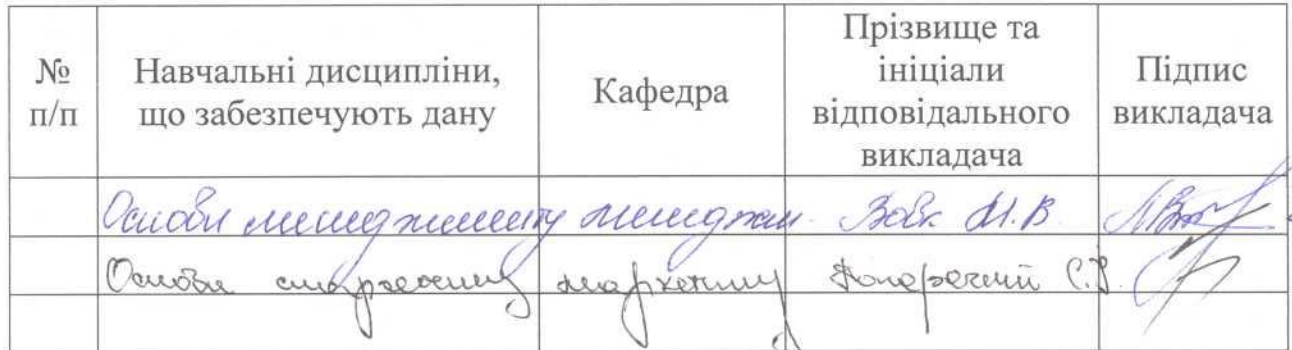 № п/п
Навчальні дисципліни, що забезпечують дану
Кафедра
Прізвище та ініціали відповідального викладача
Підпис викладача
Основи менеджменту менеджм. Вовк М.В.
Основи маркетингу С.